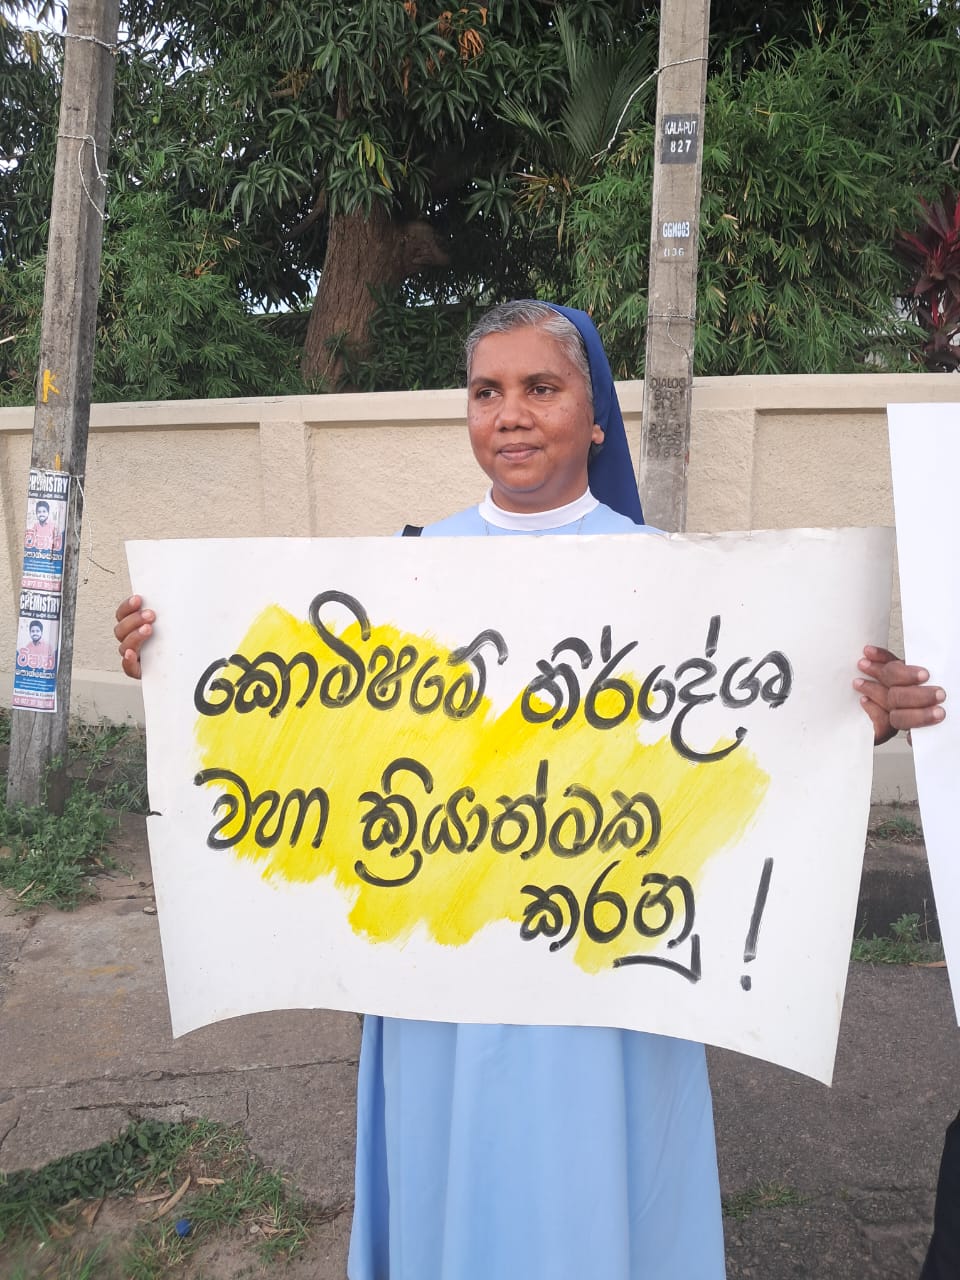 කොමිෂමේ නිර්දේශ
වහා ක්‍රියාත්මක
කරනු !
KALA-PUT
827
GGM003
036
DIALOG
K
CHEMISTRY
CHEMISTRY